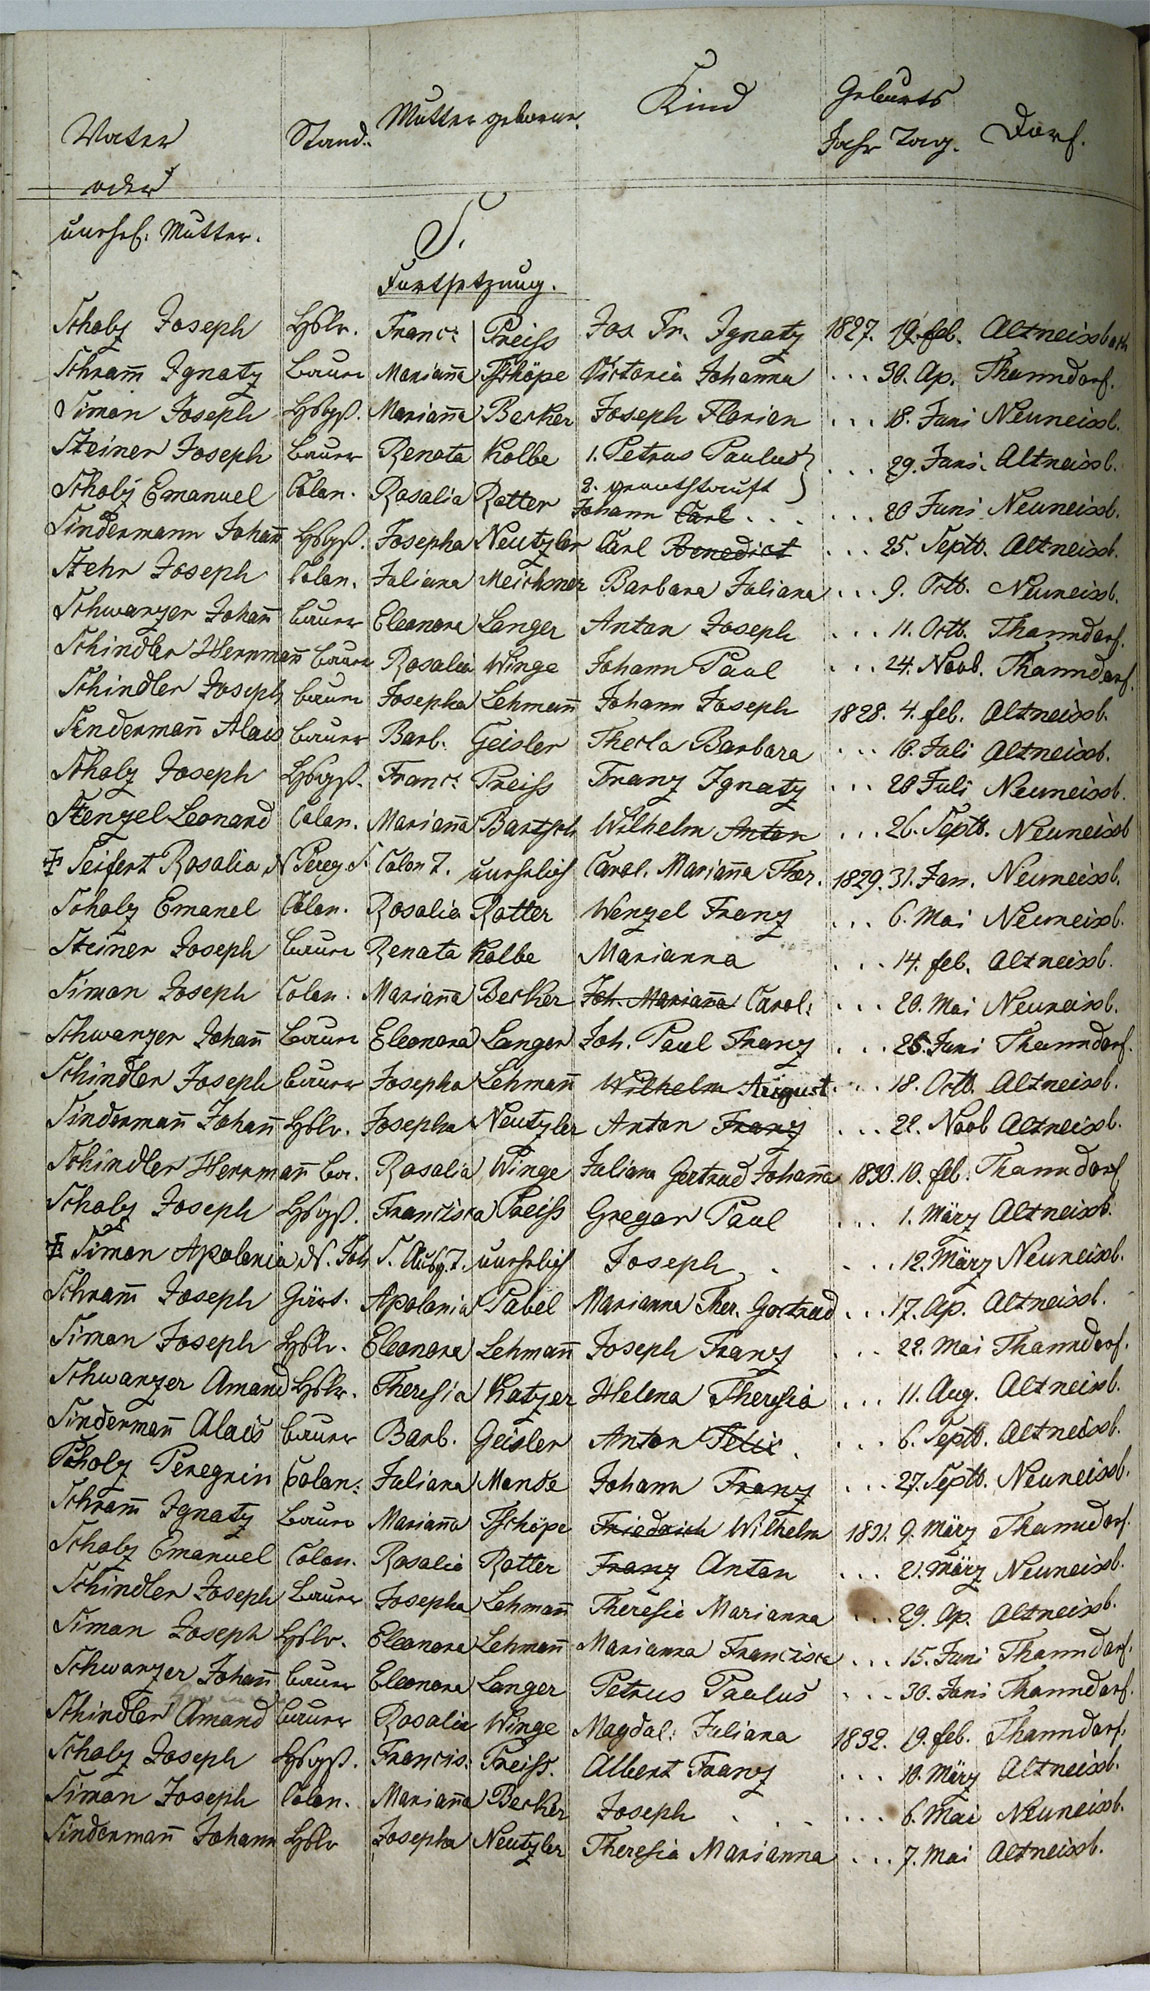 Vater Stand. Mutter geborne. Kind Geburts
Jahr Tag. Dorf.
oder
unehel. Mutter.
S.
Fortsetzung.
Scholz Joseph Hslr. Franc: Preiss Jos. Fr. Ignatz 1827. 19. feb. Altneissbach
Schram̄ Ignatz Bauer Marian̄a Tschöpe Victoria Johanna ... 30. Ap. Thanndorf.
Simon Joseph Hsbgß. Marian̄a Becker Joseph Florian ... 18. Juni Neuneissb.
Steiner Joseph Bauer Renata Kolbe 1. Petrus Paulus ... 29. Juni. Altneissb.
2. genothtauft
Scholz Emanuel Colon. Rosalia Rotter Johann Carl ... 20 Juni Neuneissb.
Sindermann Johan̄ Hsbgß. Josepha Neutzler Carl Benedict ... 25. Septb. Altneissb.
Stehr Joseph Colon. Juliana Meichsner Barbara Juliana ... 9. Octb. Neuneissb.
Schwarzer Johan̄ Bauer Eleonora Langer Anton Joseph ... 11. Octb. Thanndorf.
Schindler Herrman̄ Bauer Rosalia Winge Johann Paul ... 24. Novb. Thanndorf.
Schindler Joseph Bauer Josepha Lehman̄ Johann Joseph 1828. 4. feb. Altneissb.
Sinderman̄ Alois Bauer Barb. Geisler Thecla Barbara ... 16. Juli Altneissb.
Scholz Joseph Hsbgß. Franc: Preiss Franz Ignatz ... 28 Juli Neuneissb.
Stenzel Leonard Colon. Marian̄a Bartsch Wilhelm Anton ... 26. Septb. Neuneissb
Seifert Rosalia, N. Pereg S. Colon T. unehelich Carol. Marian̄a Ther. 1829. 31. Jan. Neuneissb.
Scholz Emanel Colon. Rosalia Rotter Wenzel Franz ... 6. Mai Neuneissb.
Steiner Joseph Bauer Renata Kolbe Marianna ... 14. feb. Altneissb.
Simon Joseph Colon. Marian̄a Becker Joh. Marian̄a Carol: ... 20. Mai Neuneissb.
Schwarzer Johan̄ Bauer Eleonora Langer Joh. Paul Franz ... 25. Juni Thanndorf.
Schindler Joseph Bauer Josepha Lehman̄ Wilhelm August ... 18. Octb. Altneissb.
Sinderman̄ Johan̄ Hslr. Josepha Neutzler Anton Franz ... 22. Novb Altneissb.
Schindler Herrman̄ Br. Rosalia Winge Juliana Gertrud Johan̄a 1830. 10. feb. Thanndorf
Scholz Joseph Hsbgß. Francisca Preiss Gregor Paul ... 1. März Altneissb.
Simon Apolonia, N. Joh S. Ausg. T. unehelich Joseph ... 12. März Neuneissb.
Schram̄ Joseph Gärt. Apolonia Pabel Marianna Ther. Gertrud ... 17. Ap. Altneissb.
Simon Joseph Hslr. Eleonora Lehman̄ Joseph Franz ... 22. Mai Thanndorf.
Schwarzer Amand Hslr. Theresia Katzer Helena Theresia ... 11. Aug. Altneissb.
Sinderman̄ Alois Bauer Barb. Geisler Anton Felix ... 6. Septb. Altneissb.
Scholz Peregrin Colon: Juliana Mende Johann Franz ... 27. Septb. Neuneissb.
Schram̄ Ignatz Bauer Marian̄a Tschöpe Friedrich Wilhelm 1831. 9. März Thanndorf.
Scholz Emanuel Colon. Rosalia Rotter Franz Anton ... 21. März Neuneissb.
Schindler Joseph Bauer Josepha Lehman̄ Theresia Marianna ... 29. Ap. Altneissb.
Simon Joseph Hslr. Eleonora Lehman̄ Marianna Francisca ... 15. Juni Thanndorf.
Schwarzer Johan̄ Bauer Eleonora Langer Petrus Paulus ... 30. Juni Thanndorf.
Schindler Amand Bauer Rosalia Winge Magdal: Juliana 1832. 19. feb. Thanndorf.
Scholz Joseph Hsbgß. Francis: Preiss. Albert Franz ... 10. März Altneissb.
Simon Joseph Colon. Marian̄a Becker Joseph ... 6. Mai Neuneissb.
Sinderman̄ Johann Hslr Josepha Neutzler Theresia Marianna ... 7. Mai Altneissb.